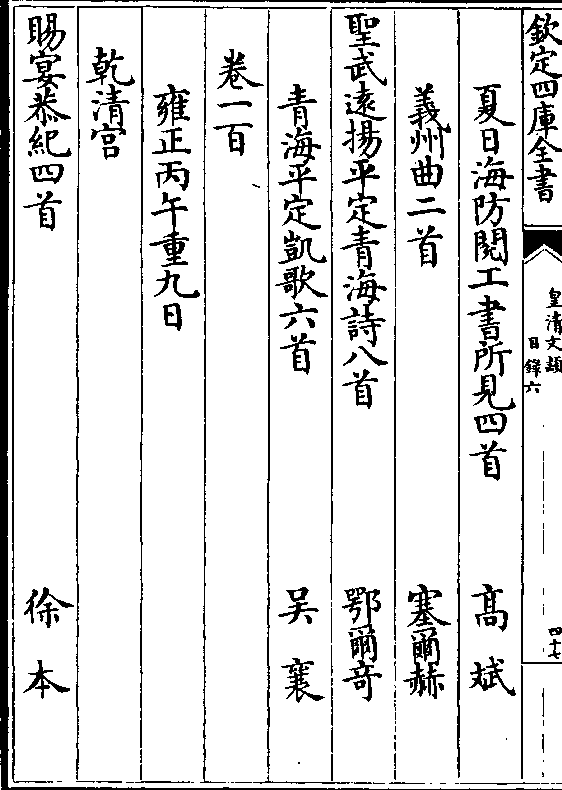 欽定四庫全書
皇清文類
目錄六
四十七
夏日海防閱工書所見四首 高斌
義州曲二首 塞爾赫
聖武遠揚平定青海詩八首 鄂爾奇
青海平定凱歌六首 吴襄
卷一百
雍正丙午重九日
乾清宮
賜宴恭紀四首 徐本